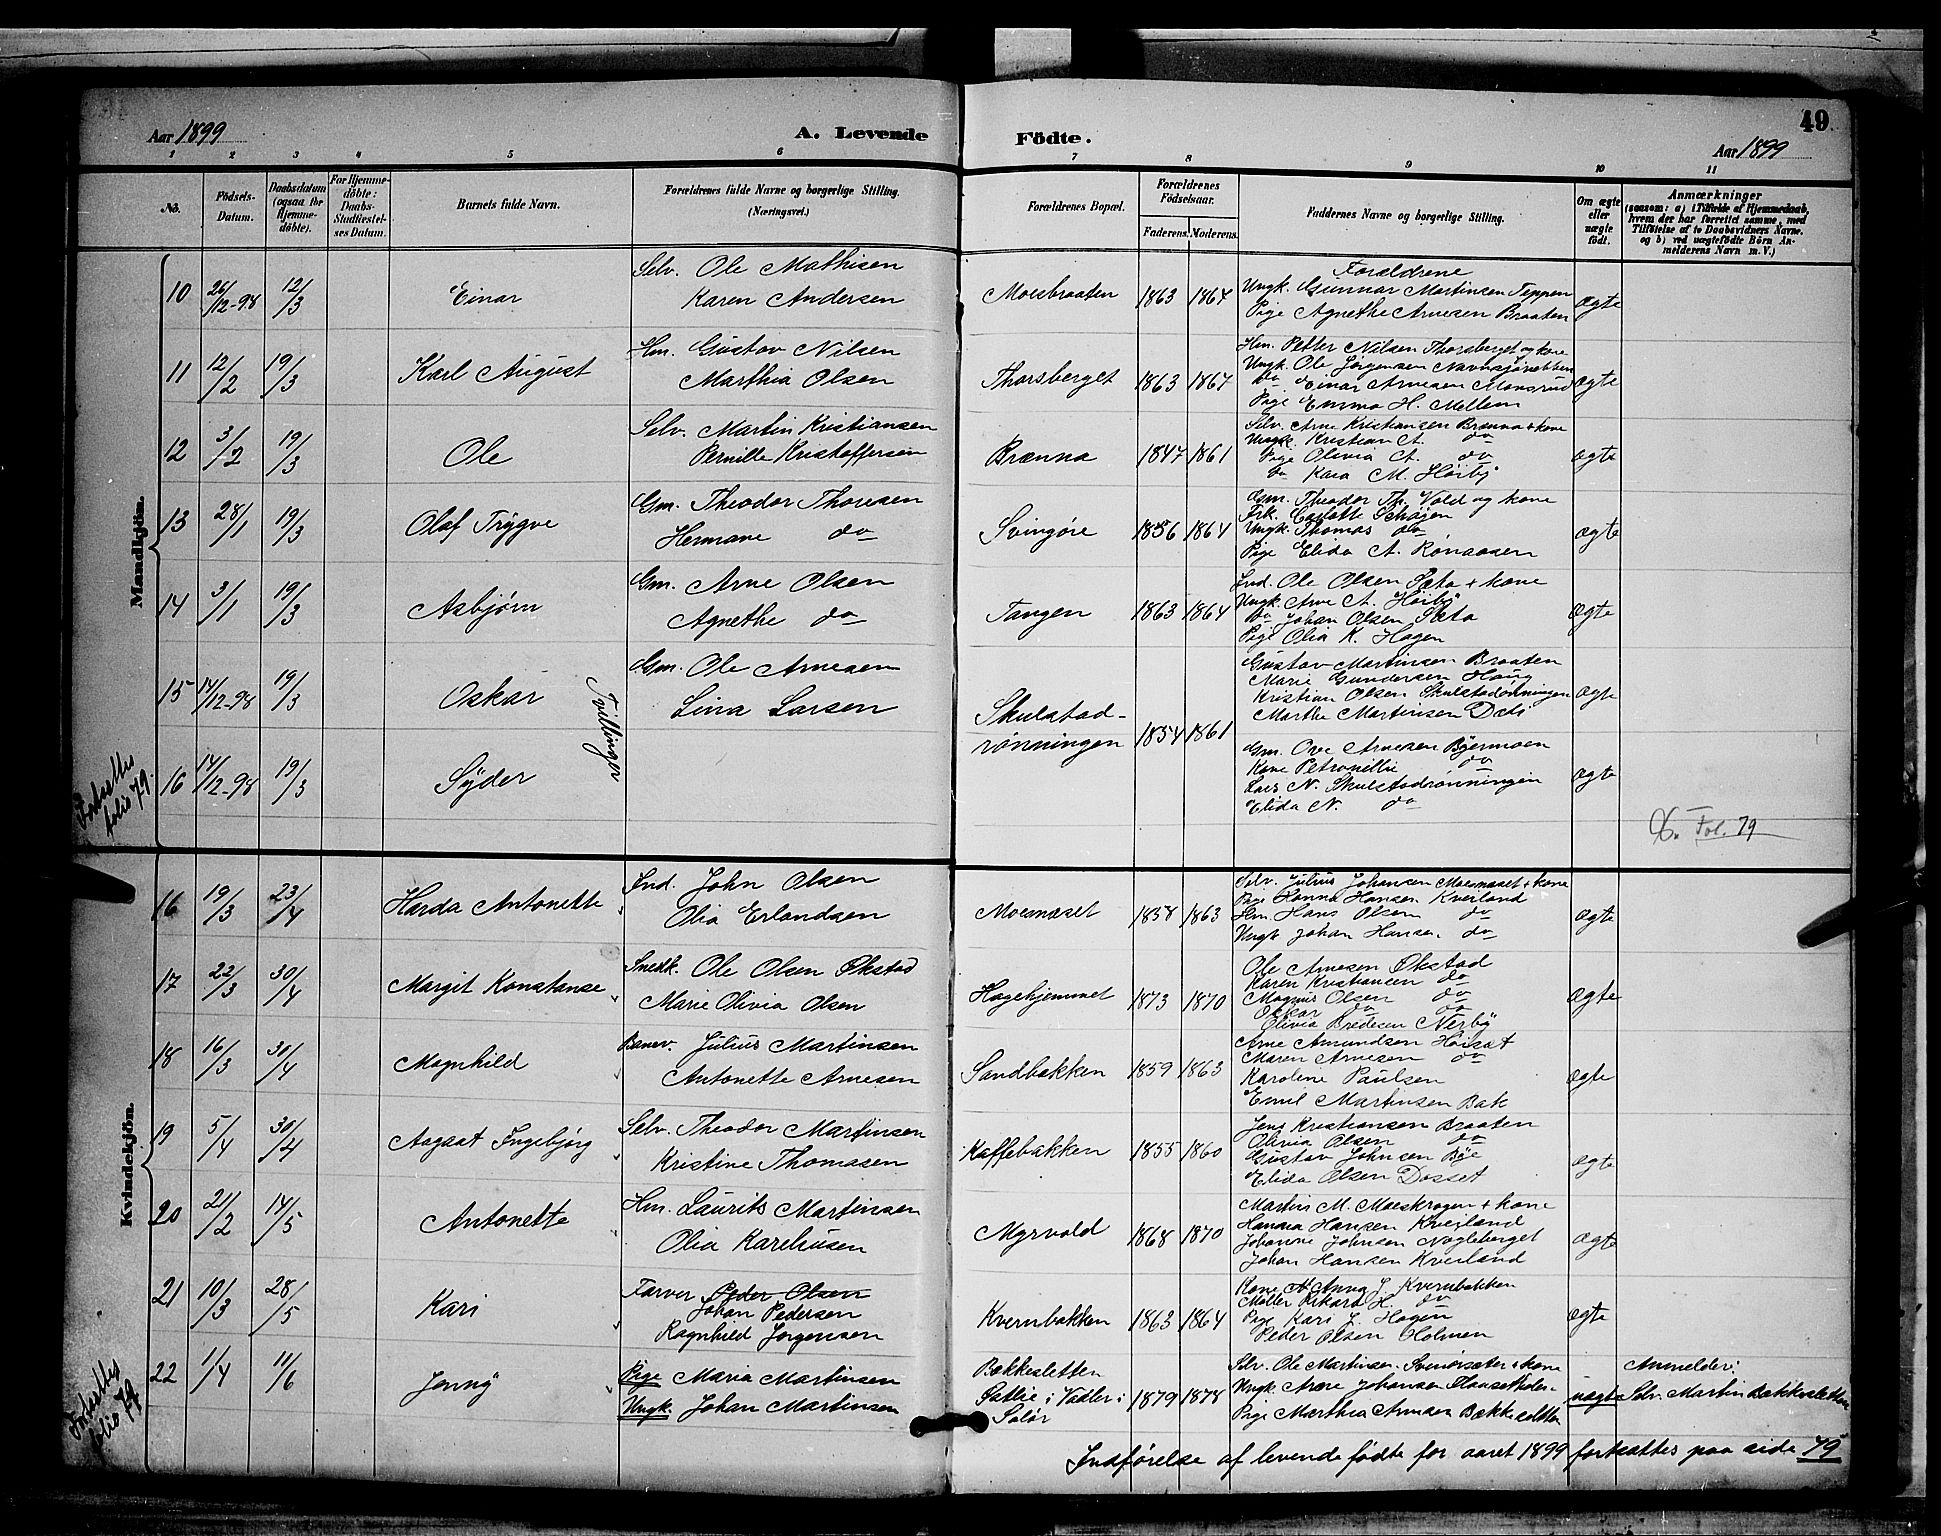 Aar 1899
A. Levende
Födte.
49
Aar 1899
1 2 3 4 5 6 7 8 9 10 11
No.
Födsels-
Datum.
Daabsdatum
(ogsaa for
Hjemme-
döbte).
For Hjemme-
döbte:
Daabs-
Stadfæstel-
ses Datum.
Barnets fulde Navn.
Forældrenes fulde Navne og borgerlige Stilling.
(Næringsvei.)
Forældrenes Bopæl.
Forældrenes
Födselsaar.
Faderens. Moderens.
Faddernes Navne og borgerlige Stilling.
Om ægte
eller
uægte
födt.
Anmærkninger
(saasom: a) i Tilfælde af Hjemmedaab,
hvem der har forrettet samme, med
Tilföielse af to Daabsvidners Navne.
og b) ved uægtefödte Börn An-
melderens Navn m. V.)
Mandkjön.
10 26/12-98 12/3 Einar
Selv. Ole Mathisen
Karen Andersen
Moesbraaten 1863 1864
Forældrene
Ungk. Gunnar Martinsen Teppen
Pige Agnethe Arnesen Braaten
ægte
11 12/2 19/3 Karl August
Hm. Gustav Nilsen
Marthia Olsen
Thorsberget 1863 1867
Hm. Petter Nilsen Thorsberget og kone
Ungk. Ole Jørgensen
Do Einar Arnesen Monsrud
Pige Emma H. Mellem
ægte
12 3/2 19/3 Ole
Selv. Martin Kristiansen
Pernille Kristoffersen
Brænna 1847 1861
Selv. Arne Kristiansen Brænna + kone
Ungk. Kristian A. do
Pige Olivia A. do
Do Kaia M. Høiby
ægte
13 28/1 19/3 Olaf Trygve
Gm. Theodor Thoresen
Hermane do
Svingöre 1856 1864
Gm. Theodor Th. Vold og kone
Frk. Carlotte Schøjen
Ungk. Thomas do
Pige Elida A. Rønaasen
ægte
14 3/1 19/3 Asbjørn
Gm. Arne Olsen
Agnethe do
Tangen 1863 1864
Ind. Ole Olsen Sæta + kone
Ungk. Arne A. Høiby
Do Johan Olsen Sæta
Pige Olia K. Hagen
ægte
15 14/12-98 19/3 Oskar
Tvillinger
Gm. Ole Arnesen
Lina Larsen
Skulstad-
rønningen 1854 1861
Gustav Martinsen Braaten
Marie Gundersen Haug
Kristian Olsen Skulstadrønningen
Marthe Martinsen
ægte
16 14/12-98 19/3 Syder
Gm. Ove Arnesen Bjermoen
Kone Petronille do
Lars N. Skulstadrønningen
Elida N. do
ægte
Fortsættes
folio 79.
Fol. 79
Kvindekjön.
16 19/3 23/4 Harda Antonette
Ind. John Olsen
Olia Erlandsen
Moesnæset 1858 1863
Selv. Julius Johansen Moesnæset + kone
Pige Hanna Hansen Kverland
Hm. Hans Olsen do
Ungk Johan Hansen do
ægte
17 22/3 30/4 Margit Konstanse
Snedk. Ole Olsen Økstad
Marie Olivia Olsen
Hagehjemmet 1873 1870
Ole Arnesen Økstad
Karen Kristiansen do
Magnus Olsen do
Oskar do do
Olivia Bredesen Nerby
ægte
18 16/3 30/4 Magnhild
Banev. Julius Martinsen
Antonette Arnesen
Sandbakken 1859 1863
Arne Amundsen Høisæt
Maren Arnesen do
Karoline Paulsen
Emil Martinsen Bak
ægte
19 5/4 30/4 Aagaat Ingebjørg
Selv. Theodor Martinsen
Kristine Thomasen
Kaffebakken 1855 1860
Jens Kristiansen Braaten
Olivia Olsen do
Gustav Johnsen Bye
Elida Olsen Dosset
ægte
20 21/2 14/5 Antonette
Hm. Laurits Martinsen
Olia Karelusen
Myrvold 1868 1870
Martin M. Moeskrogen + kone
Hanna Hansen Kverland
Johanne Johnsen Nagleberget
Johan Hansen Kverland
ægte
21 10/3 28/5 Kari
Farver Peder Olsen
Johan Pedersen
Ragnhild Jørgensen
Kvernbakken 1863 1864
Kone Anna J. Kvernbakken
Møller Rikard H. do
Pige Kari J. Hagen
Peder Olsen Holmen
ægte
22 1/4 11/6 Jenny
Pige Maria Martinsen
Ungk. Johan Martinsen
Bækkesletten
i Vaaler i
Solør
1879 1878
Selv. Ole Martinsen Svinörsæter + kone
Ungk Arne Johansen
Pige Marthia Arnesen Bækkesletten
uægte
Anmelder:
Selv. Martin Bækkesletten
Fortsættes
folio 79
Indførelse af levende fødte for aaret 1899 fortsættes paa side 79